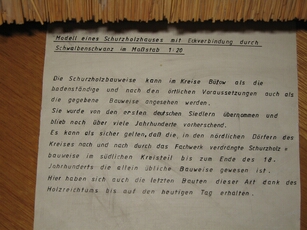 Modell eines Schurzholzhauses mit Eckverbindung durch
Schwalbenschwanz im Maßstab 1:20
Die Schurzholzbauweise kann im Kreise Bütow als die
bodenständige und nach den örtlichen Voraussetzungen auch als
die gegebene Bauweise angesehen werden.
Sie wurde von den ersten deutschen Siedlern übernommen und
blieb noch über viele Jahrhunderte vorherrschend.
Es kann als sicher gelten, daß die, in den nördlichen Dörfern des
Kreises nach und nach durch das Fachwerk verdrängte Schurzholz-
bauweise im südlichen Kreisteil bis zum Ende des 18.
Jahrhunderts die allein übliche Bauweise gewesen ist.
Hier haben sich auch die letzten Bauten dieser Art dank des
Holzreichtums bis auf den heutigen Tag erhalten.